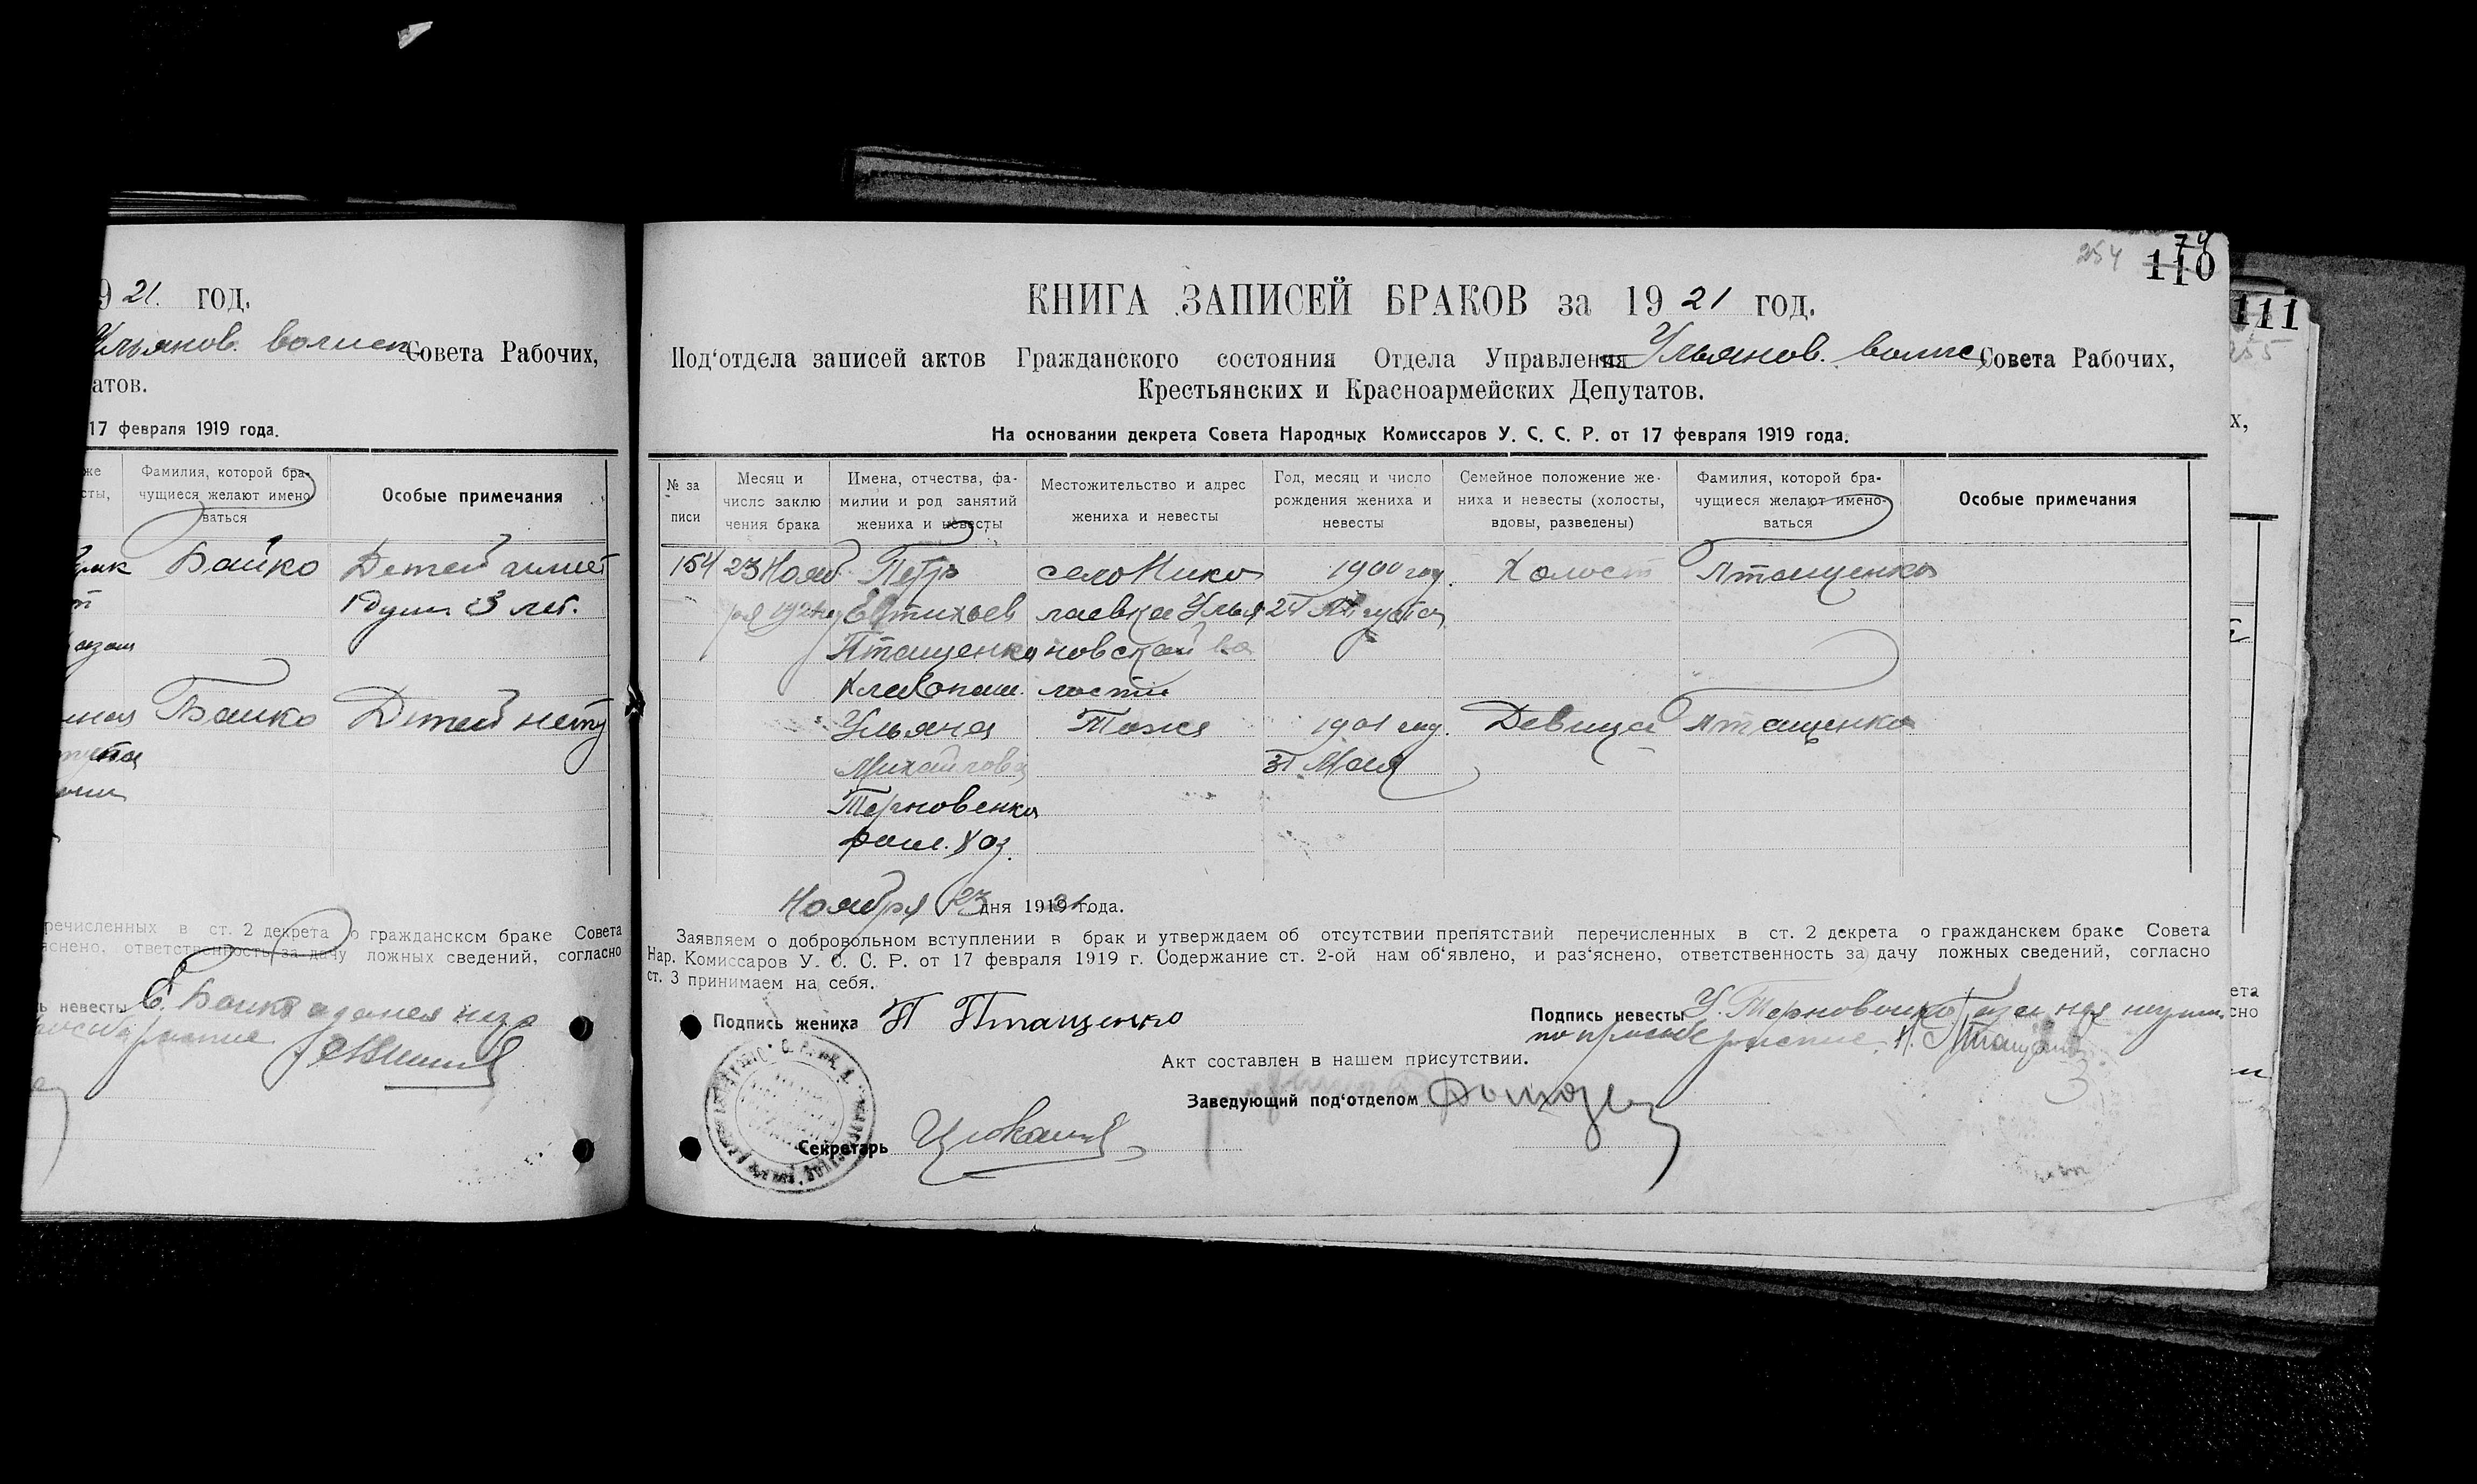 9 21. год.
Ульянов. волисп. Совета Рабочих,
атов.
17 февраля 1919 года.
же
сты,
Фамилия, которой бра-
чущиеся желают имено
ваться
Особые примечания
Байко Детей
1 душа 3 лет.
Байко Детей нету
речисленных в ст. 2 декрета о гражданском браке Совета
яснено, ответственность за дачу ложных сведений, согласно
ь невесты Е. Байко а за нея
254 74
110
КНИГА ЗАПИСЕЙ БРАКОВ за 19 21 год.
Под‘отдела записей актов Гражданского состояния Отдела Управления Ульянов. волис Совета Рабочих,
Крестьянских и Красноармейских Депутатов.
На основании декрета Совета Народных Комиссаров У. С. С. Р. от 17 февраля 1919 года.
№ за
писи
Месяц и
число заклю
чения брака
Имена, отчества, фа-
милии и род занятий
жениха и невесты
Местожительство и адрес
жениха и невесты
Год, месяц и число
рождения жениха и
невесты
Семейное положение же-
ниха и невесты (холосты,
вдовы, разведены)
Фамилия, которой бра-
чущиеся желают имено-
ваться
Особые примечания
154 23 Нояб Петр село Нико 1900 год. Холост Птащенко
ря 1921 Евтихьев лаевка Улья 24 Августа
Птащенко новской во
Хлебопаш. лости
Ульяна Тоже 1901 год. Девица Птащенко
Михайлова 31 Мая
Терновенко
дом. хоз.
Ноября 23 дня 1921 года.
Заявляем о добровольном вступлении в брак и утверждаем об отсутствии препятствий перечисленных в ст. 2 декрета о гражданском браке Совета
Нар. Комиссаров У. С. С. Р. от 17 февраля 1919 г. Содержание ст. 2-ой нам об‘явлено, и раз‘яснено, ответственность за дачу ложных сведений, согласно
ст. 3 принимаем на себя.
Подпись жениха П Птащенко
Подпись невесты У. Терновенко а за нея
по просьбе
Акт составлен в нашем присутствии.
Заведующий под‘отделом
Секретарь
111
255
х,
ета
сно